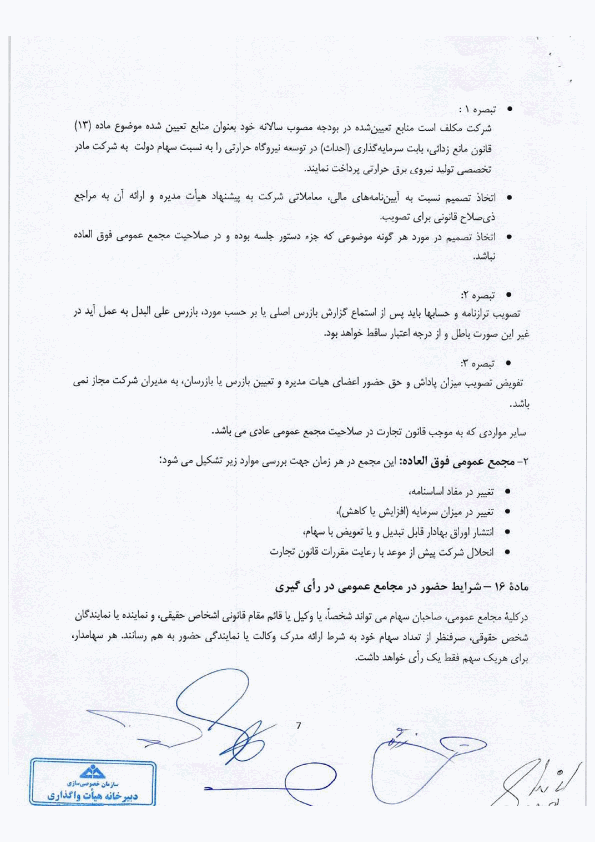 • تبصره ۱ :
شرکت مکلف است منابع تعیین‌شده در بودجه مصوب سالانه خود بعنوان منابع تعیین شده موضوع ماده (۱۳)
قانون مانع زدائی، بابت سرمایه‌گذاری (احداث) در توسعه نیروگاه حرارتی را به نسبت سهام دولت به شرکت مادر
تخصصی تولید نیروی برق حرارتی پرداخت نمایند.
• اتخاذ تصمیم نسبت به آیین‌نامه‌های مالی، معاملاتی شرکت به پیشنهاد هیأت مدیره و ارائه آن به مراجع
ذی‌صلاح قانونی برای تصویب.
• اتخاذ تصمیم در مورد هر گونه موضوعی که جزء دستور جلسه بوده و در صلاحیت مجمع عمومی فوق العاده
نباشد.
• تبصره ۲:
تصویب ترازنامه و حسابها باید پس از استماع گزارش بازرس اصلی یا بر حسب مورد، بازرس علی البدل به عمل آید در
غیر این صورت باطل و از درجه اعتبار ساقط خواهد بود.
• تبصره ۳:
تفویض تصویب میزان پاداش و حق حضور اعضای هیات مدیره و تعیین بازرس یا بازرسان، به مدیران شرکت مجاز نمی
باشد.
سایر مواردی که به موجب قانون تجارت در صلاحیت مجمع عمومی عادی می باشد.
۲- مجمع عمومی فوق العاده: این مجمع در هر زمان جهت بررسی موارد زیر تشکیل می شود:
• تغییر در مفاد اساسنامه،
• تغییر در میزان سرمایه (افزایش یا کاهش)،
• انتشار اوراق بهادار قابل تبدیل و یا تعویض با سهام،
• انحلال شرکت پیش از موعد با رعایت مقررات قانون تجارت
مادۀ ۱۶ – شرایط حضور در مجامع عمومی در رأی گیری
درکلیۀ مجامع عمومی، صاحبان سهام می تواند شخصاً، یا وکیل یا قائم مقام قانونی اشخاص حقیقی، و نماینده یا نمایندگان
شخص حقوقی، صرفنظر از تعداد سهام خود به شرط ارائه مدرک وکالت یا نمایندگی حضور به هم رسانند. هر سهامدار،
برای هریک سهم فقط یک رأی خواهد داشت.
7
سازمان خصوصی‌سازی
دبیرخانه هیأت واگذاری